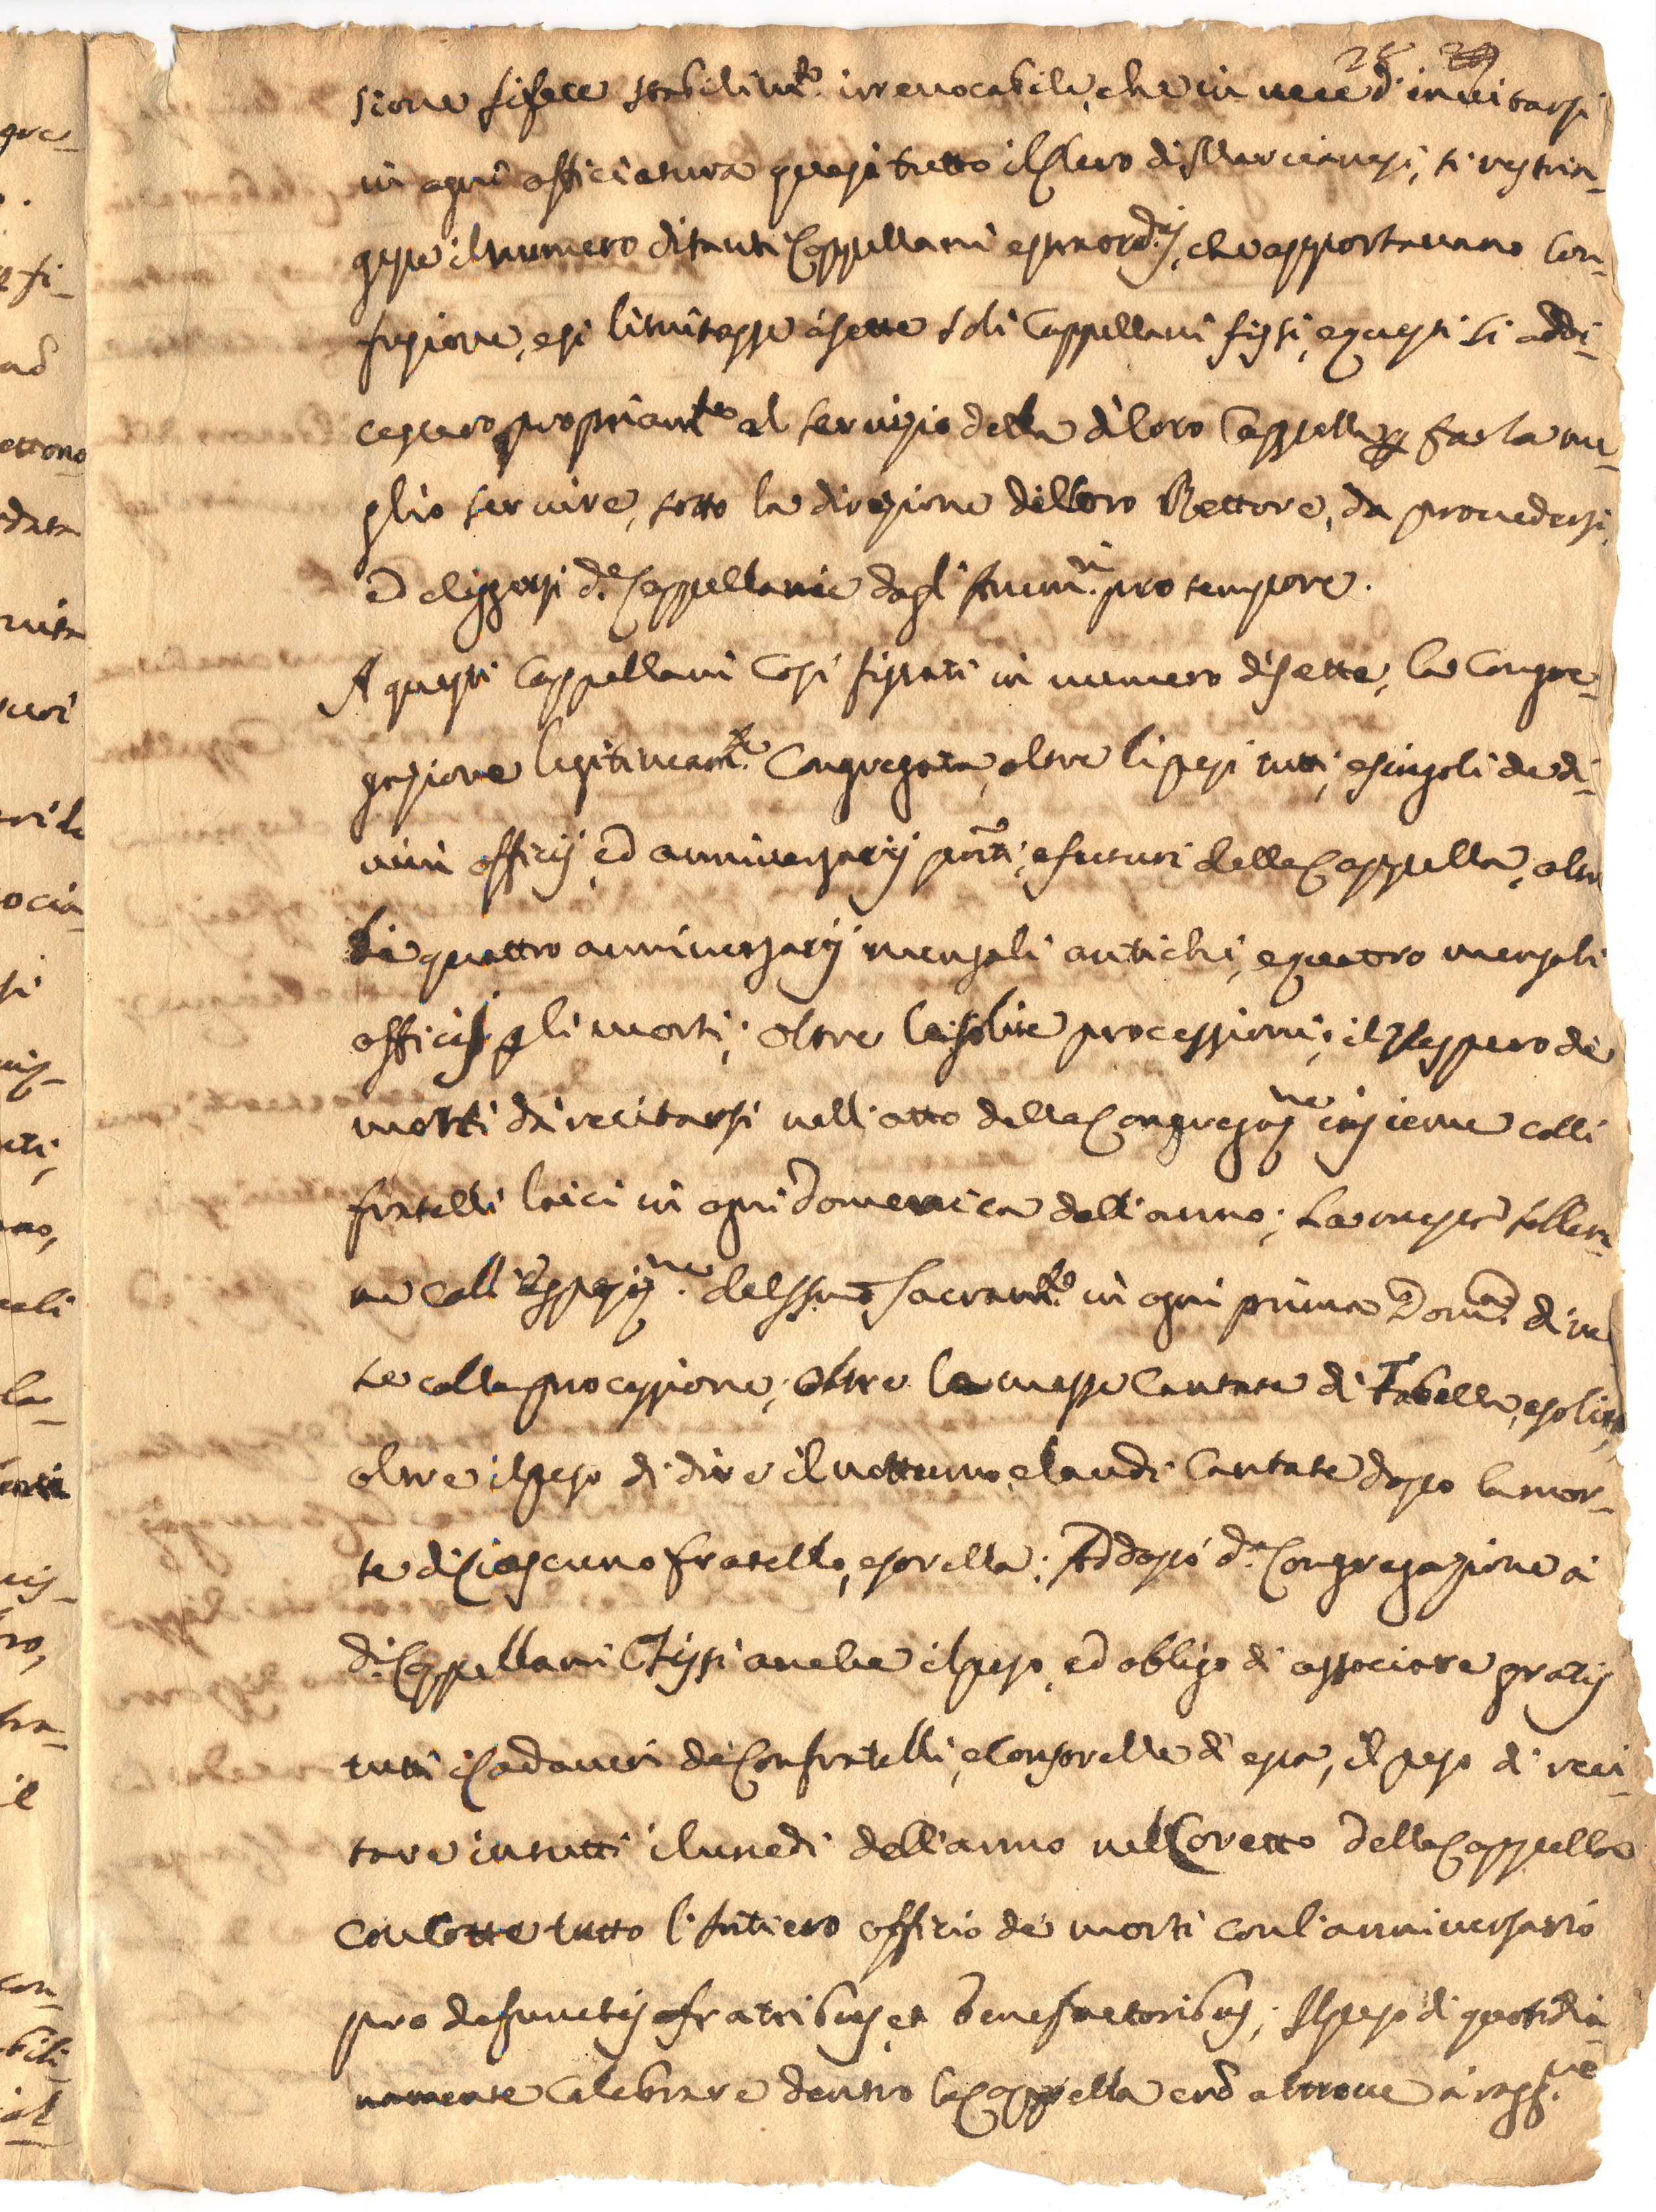 28
sione si fece stabilim.to irrevocabile, che in vece d'invitarsi
in ogni officiatura quasi tutto il Clero di Marcianesi, si restrin-
gesse il numero di tanti Cappellani estraord.ij, che apportavano con-
fusione, e si limitasse à sette soli Cappellani fissi, e questi si addi-
cessero propriam.te al servizio della di loro Cappella p farla me-
glio servire, sotto la direzione del loro Rettore, da provedersi,
ed eliggersi d.e Cappellanie dagl'Amm.ri pro tempore.
A questi Cappellani così fissati in numero di sette, la Congre-
gazione legitimam.te Congregata, oltre li pesi tutti, e singoli de di-
vini officij, ed anniversarij pnti, e futuri della Cappella, oltre
li quattro anniversarij mensali antichi, e quattro mensali
officij p gli morti; oltre le solite processioni; il Vespero de
morti da recitarsi nell'atto della Congregaz.ne insieme colli
fratelli laici in ogni Domenica dell'anno; La messa sollen-
ne coll'Esposiz.ne del SSmo Sacram.to in ogni prima Dom.ca di me
se colla processione; oltre le messe cantate di Tabella, e solite,
oltre il peso di dire il notturno, e laudi cantate dopo la mor-
te di Ciascuno fratello, e sorella; Addossò d.a Congregazione à
d.i Cappellani Fissi anche il peso, ed obligo di associare gratis
tutti i Cadaveri de Confratelli, e Consorelle di essa, il peso di reci-
tare in tutti i lunedì dell'anno nel Coretto della Cappella
con cotte tutto l'Intiero officio de morti con l'anniversario
pro defunctis fratribus, et benefactoribus; Il peso di quotidia-
namente celebrare dentro la Cappella, e nò altrove à ragg.ne